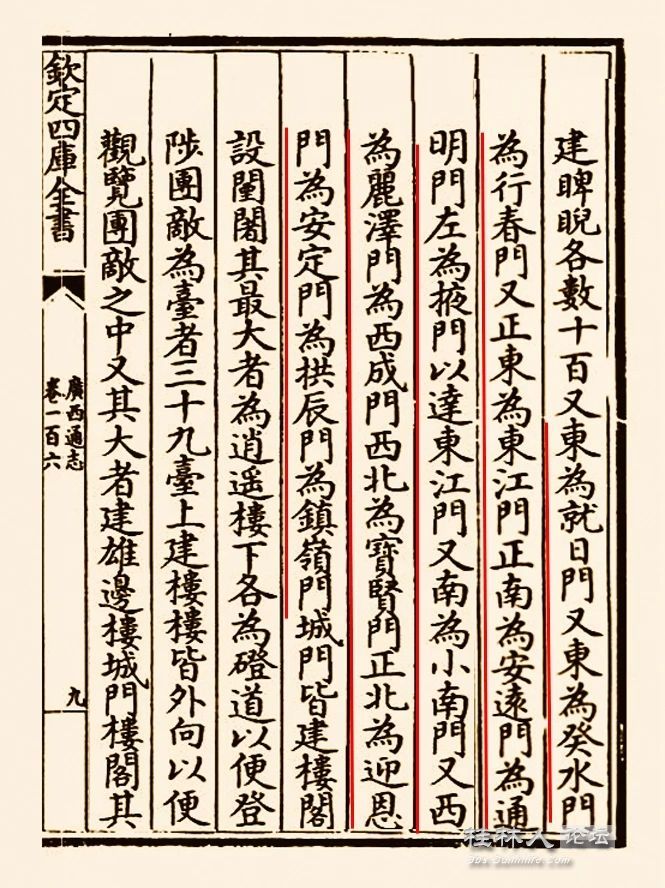 建睥睨各數十百又東為就日門又東為癸水門
為行春門又正東為東江門正南為安遠門為通
明門左為掖門以達東江門又南為小南門又西
為麗澤門為西成門西北為寶賢門正北為迎恩
門為安定門為拱辰門為鎮嶺門城門皆建樓閣
設闉闍其最大者為逍遥樓下各為磴道以便登
陟團敵為臺者三十九臺上建樓樓皆外向以便
觀覽團敵之中又其大者建雄邊樓城門樓閣其
欽定四庫全書
廣西通志
卷一百六
九
桂林人论坛